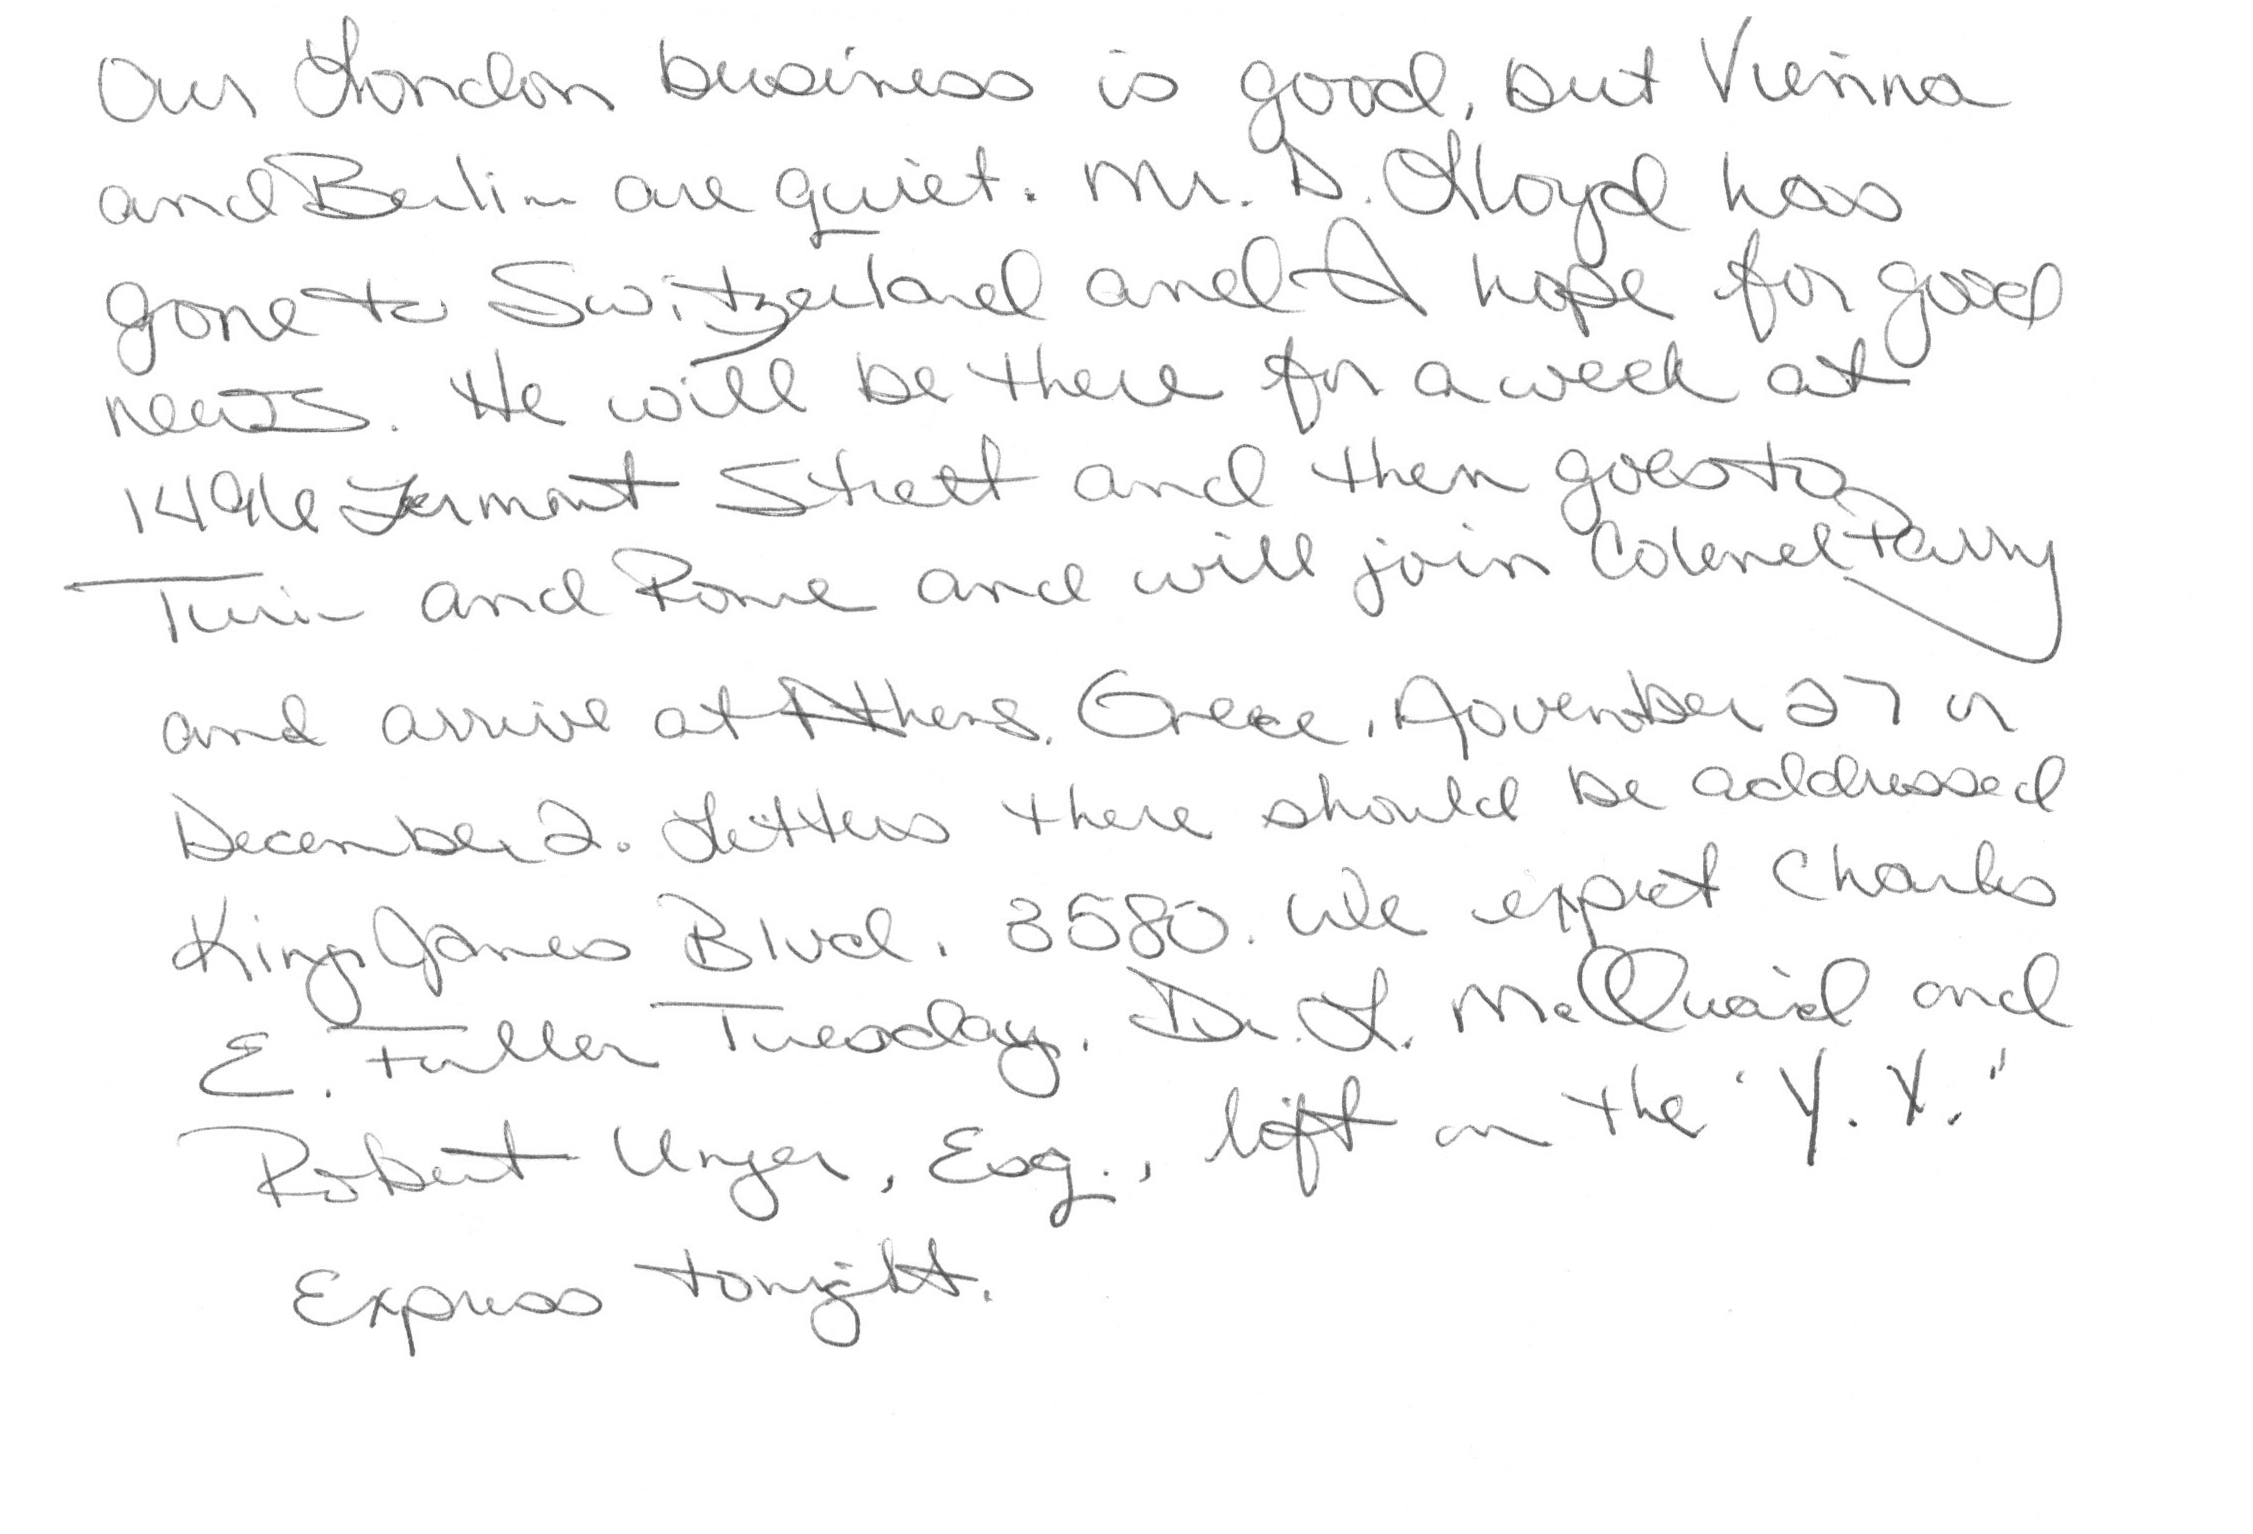 Our London business is good, but Vienna
and Berlin are quiet. Mr. D. Lloyd has
gone to Switzerland and I hope for good
news. He will be there for a week at
1496 Zermont Street and then goes to
Turin and Rome and will join Colonel Parry
and arrive at Athens, Greece, November 27 or
December 2. Letters there should be addressed
King James Blvd. 3580. We expect Charles
E. Fuller Tuesday. Dr. L. McQuaid and
Robert Unger, Esq., left on the "Y. X."
Express tonight.